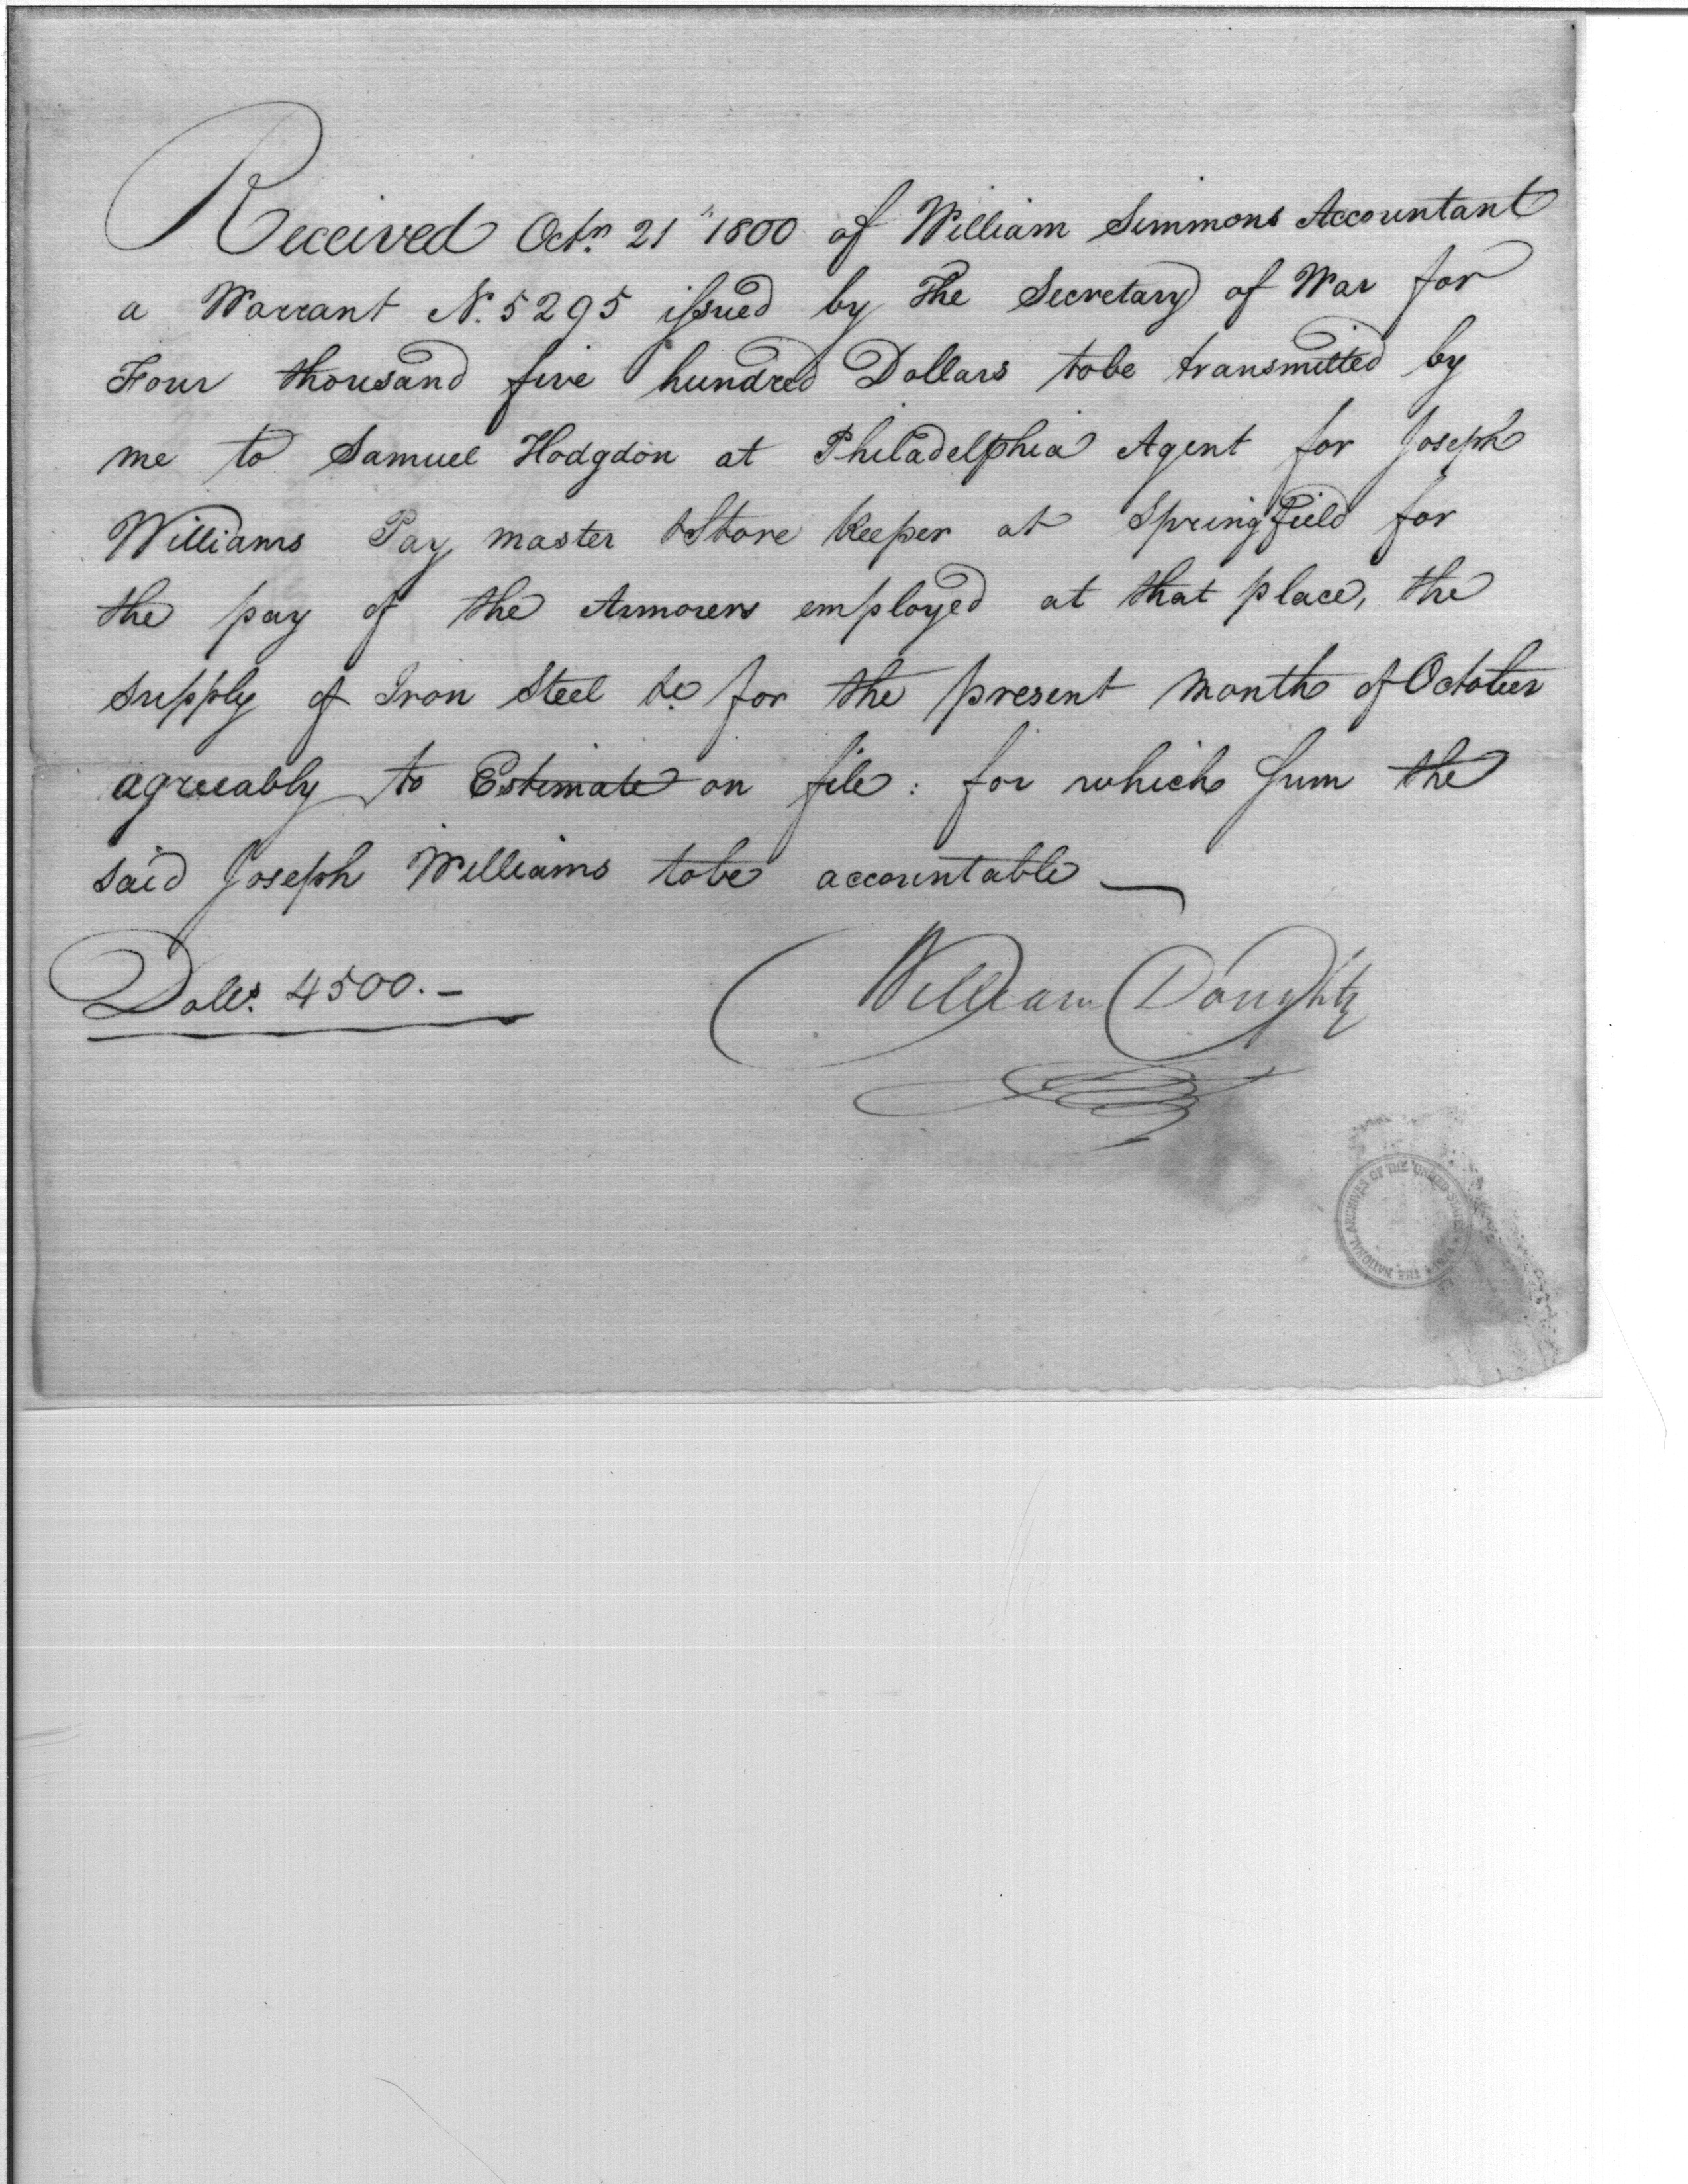 Received Octr. 21" 1800 of William Simmons Accountant
a Warrant No. 5295 issued by The Secretary of War for
Four thousand five hundred Dollars tobe transmitted by
me to Samuel Hodgdon at Philadelphia Agent for Joseph
Williams Pay master & Store keeper at Springfield for
the pay of the Armorers employed at that place, the
supply of Iron Steel &c. for the present month of October
agreeably to Estimate on file: for which Sum the
said Joseph Williams tobe accountable —
Dolls. 4500.—
William Doughty
THE NATIONAL ARCHIVES OF THE UNITED STATES